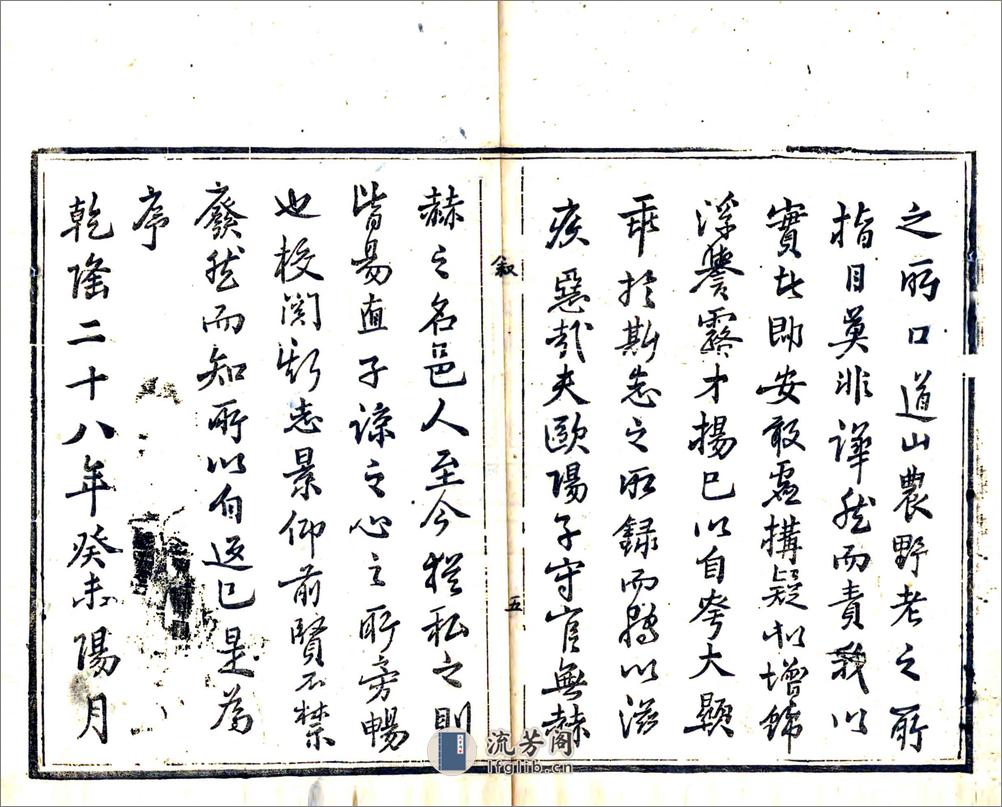 之所口道山農野老之所
指目莫非譁然而責我以
實者即安敢虛搆疑似增飾
浮譽露才揚已以自夸大顯
乖於斯志之所錄而務以滋
疾惡哉夫歐陽子守官無赫
敘
五
赫之名邑人至今猶私之則
皆易直子諒之心之所旁暢
也校閱斯志景仰前賢不禁
癈然而知所以自返已是為
序
乾隆二十八年癸未陽月
流芳阁
lfglib.cn